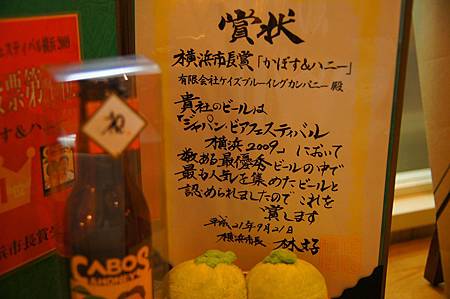 賞状
横浜市長賞「かぼす&ハニー」
有限会社ケイズブルーイングカンパニー殿
貴社のビールは
「ジャパン・ビアフェスティバル
横浜2009」において
数ある最優秀ビールの中で
最も人気を集めたビールと
認められましたのでこれを
賞します
平成21年9月21日
横浜市長 林文子
CABOS
&HONEY